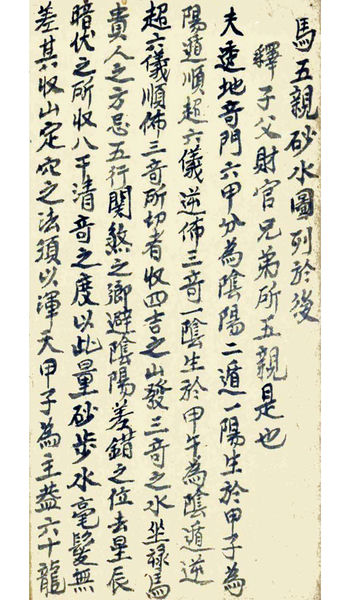 馬五親砂水圖列於後
釋子父財官兄弟所五親是也
夫透地奇門六甲分為陰陽二遁一陽生於甲子為
陽遁順超六儀逆佈三奇一陰生於甲午為陰遁逆
超六儀順佈三奇所切者收四吉之山發三奇之水坐祿馬
貴人之方忌五行關煞之鄉避陰陽差錯之位去星辰
暗伏之所收八干清奇之度以此量砂步水毫髮無
差其收山定穴之法須以渾天甲子為主蓋六十龍